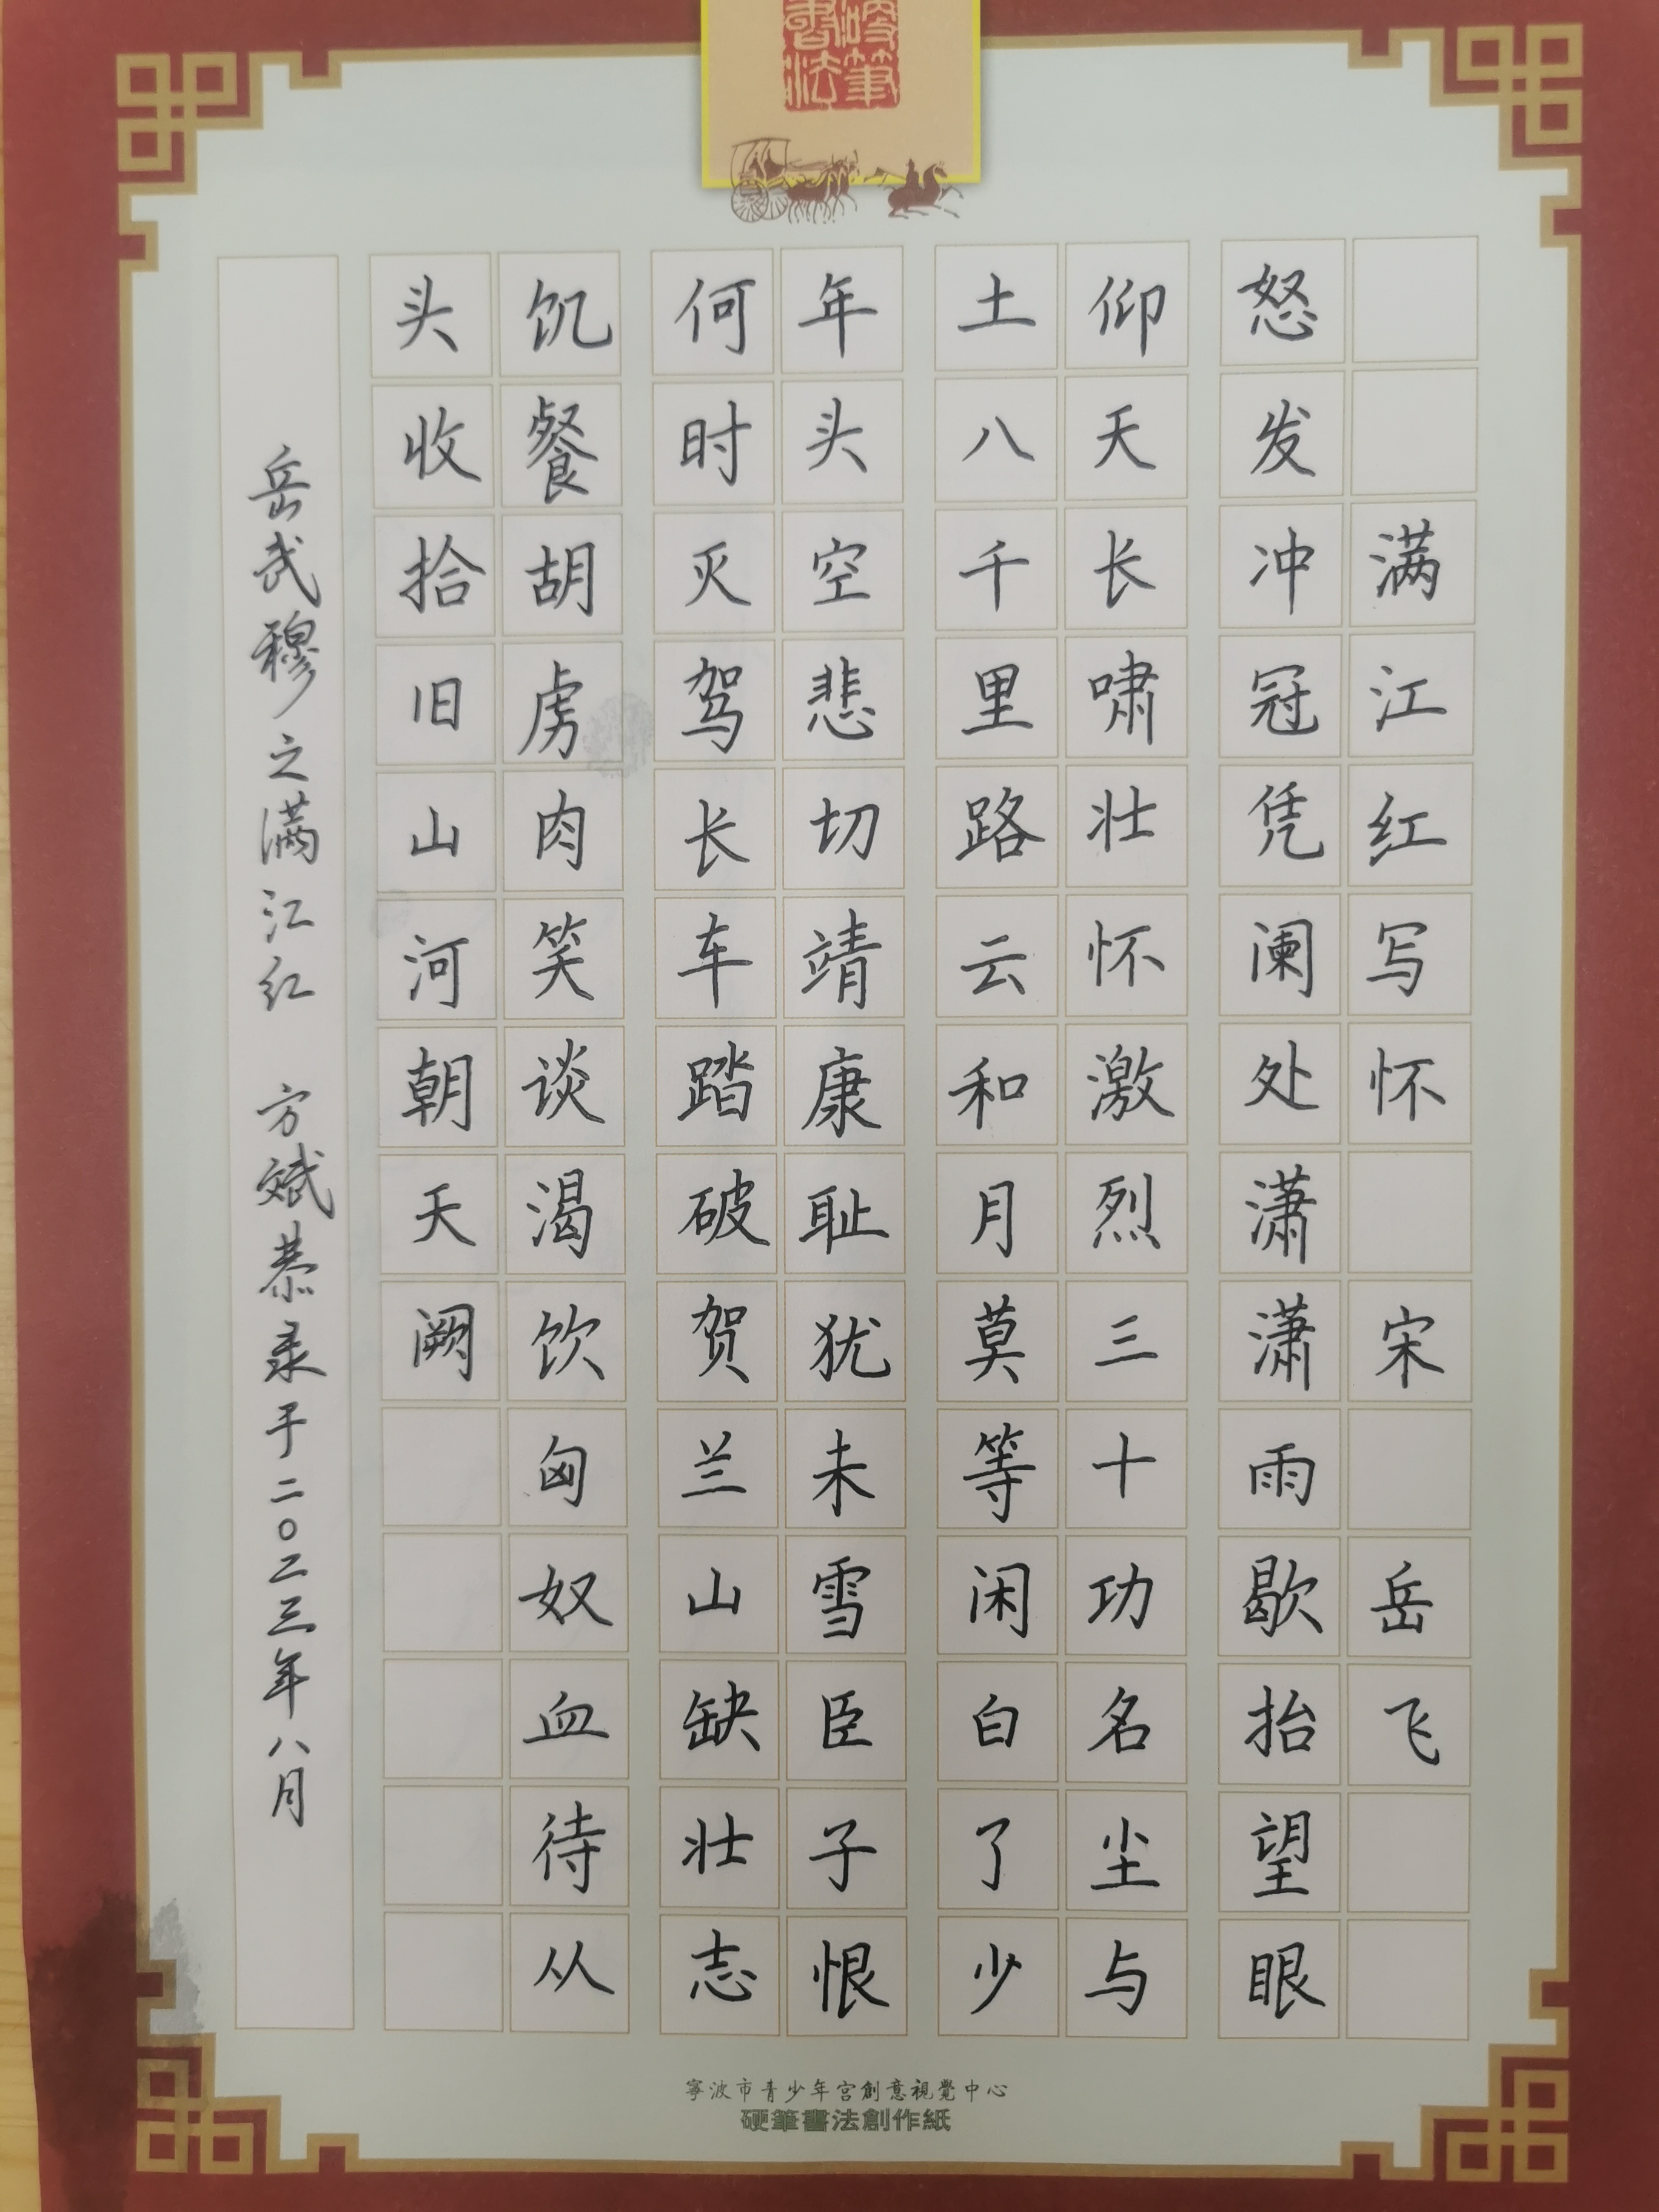 硬筆
書法
满江红写怀 宋 岳飞
怒发冲冠凭阑处潇潇雨歇抬望眼
仰天长啸壮怀激烈三十功名尘与
土八千里路云和月莫等闲白了少
年头空悲切靖康耻犹未雪臣子恨
何时灭驾长车踏破贺兰山缺壮志
饥餐胡虏肉笑谈渴饮匈奴血待从
头收拾旧山河朝天阙
岳武穆之满江红 方斌恭录于二〇二三年八月
寧波市青少年宮創意視覺中心
硬筆書法創作紙